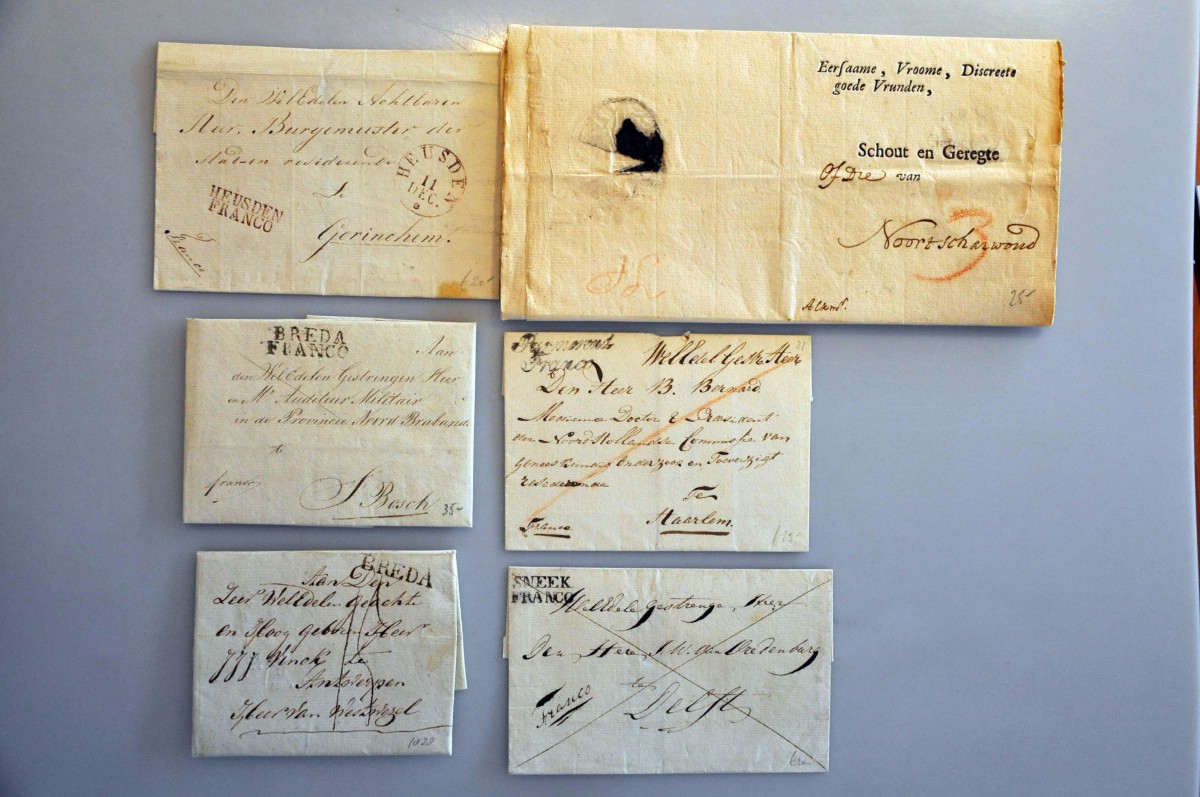 Den WelEdelen Achtbaren
Burgemeester der
Stad en residerende
te
Gorinchem.
HEUSDEN
11
DEC.
HEUSDEN
FRANCO
franco
f 20-
Eersaame, Vroome, Discreete
goede Vrunden,
Schout en Geregte
Of Die van
Noortscharwoud
3
Alkmr.
25-
BREDA
FRANCO
Aan
den WelEdelen Gestrengen Heer
en Mr Auditeur Militair
in de Provincie Noord Braband
te
franco
S Bosch
35-
Purmerend
Franco
WelEdel Gestr Heer
Den Heer B. Bernard
Medicinae Doctor & President
der Noord Hollandse Commissie van
Geneeskundig Onderzoek en Toevoorzigt
residerende
Te
Franco
Haarlem.
BREDA
Aan Den
Zeer WelEdelen Geachte
en Hoog geboren Heer
Vinck te
Antwerpen
Heer van Westwezel
1828
SNEEK
FRANCO
WelEdele Gestrenge Heer
Den Heer I. W. van Vredenburg
te
Franco
Delft